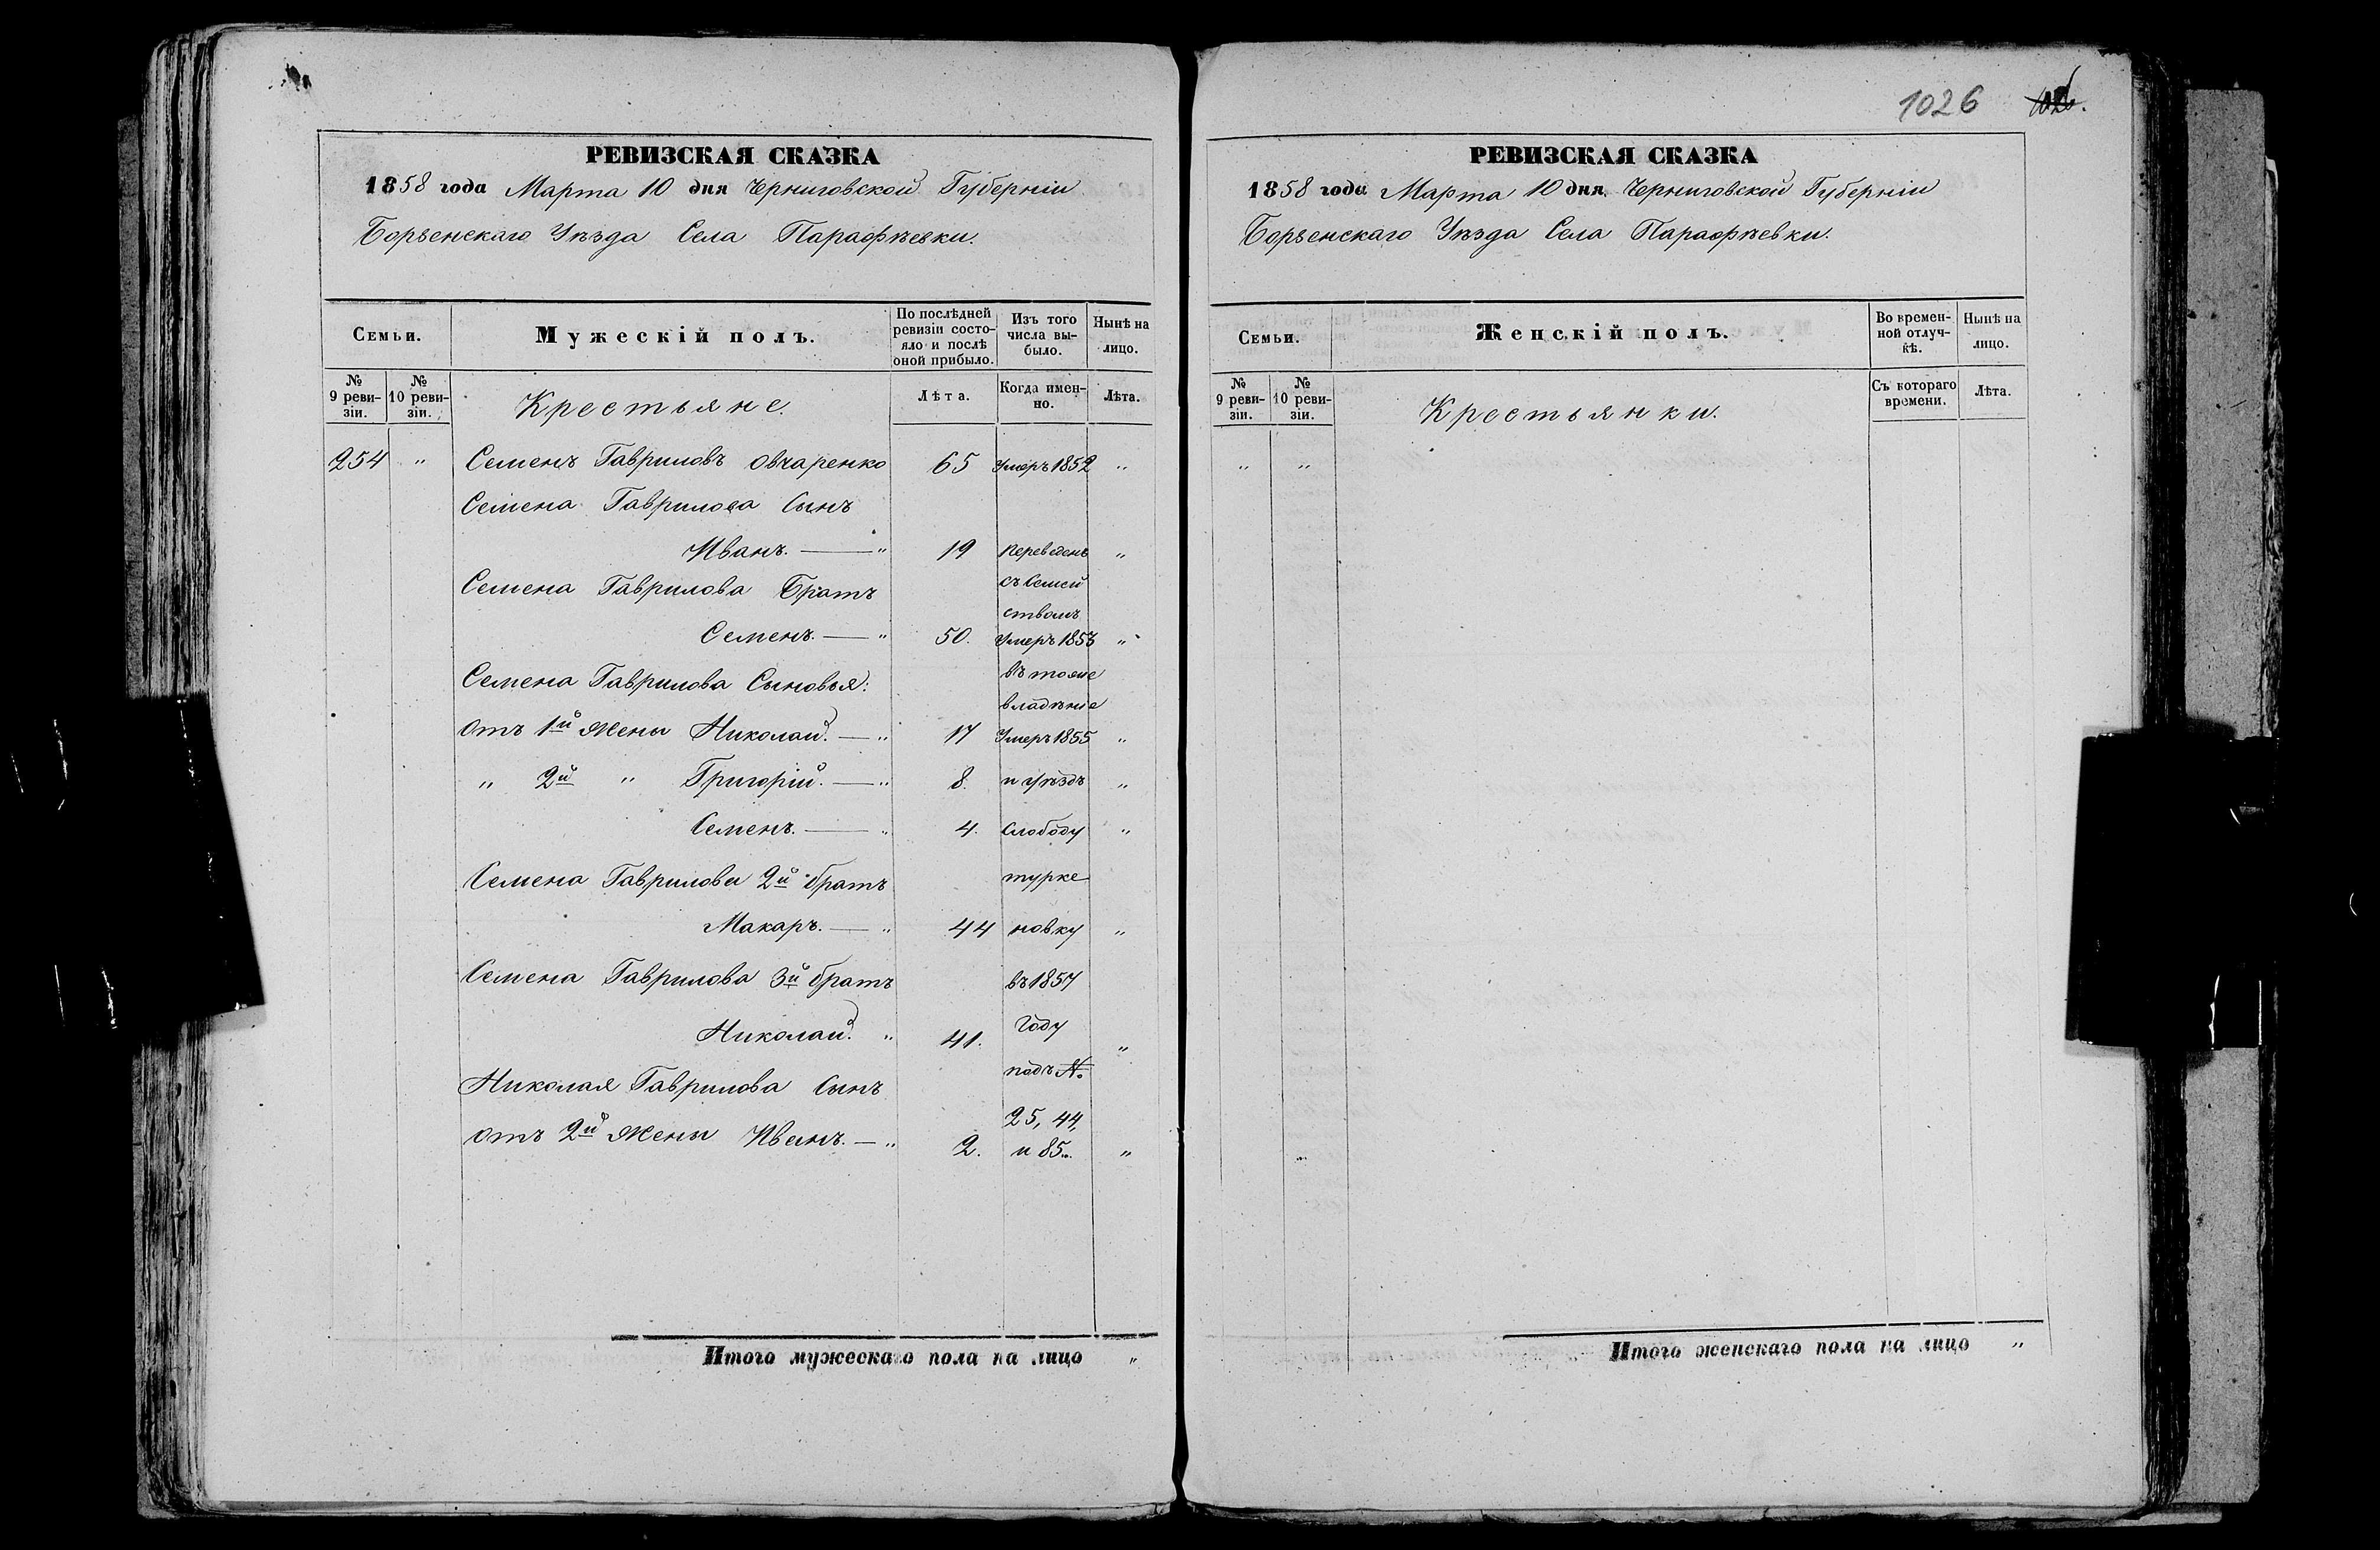 1026
РЕВИЗСКАЯ СКАЗКА
1858 года Марта 10 дня Черниговской Губерніи
Борзенскаго Уѣзда Села Парафѣевки.
Семьи.
Мужескій полъ.
По послѣдней ревизіи состо-
яло и послѣ оной прибыло.
Изъ того числа вы-
было.
Нынѣ на лицо.
№ 9 реви-
зіи.
№ 10 реви-
зіи.
Крестьяне.
Лѣта.
Когда имен-
но.
Лѣта.
254 " Семенъ Гавриловъ Овчаренко 65 Умеръ 1852 "
Семена Гаврилова Сынъ
Иванъ. — " 19 переведенъ "
Семена Гаврилова Братъ съ Семей
ствомъ
Семенъ. — " 50. Умеръ 1857 "
Семена Гаврилова Сыновья: въ тоже
владѣніе
Отъ 1й Жены Николай. — " 17 Умеръ 1855 "
" 2й " Григорій. — " 8. и уѣздъ "
Семенъ. — " 4. Слободу "
Семена Гаврилова 2й братъ турке
Макаръ. — " 44 новку "
Семена Гаврилова 3й братъ въ 1857
Николай. " 41. Году "
Николая Гаврилова Сынъ подъ №
25, 44,
отъ 2й Жены Иванъ. — " 2. и 85. "
Итого мужескаго пола на лицо "
РЕВИЗСКАЯ СКАЗКА
1858 года Марта 10 дня Черниговской Губерніи
Борзенскаго Уѣзда Села Парафѣевки.
Семьи.
Женскій полъ.
Во времен-
ной отлуч-
кѣ.
Нынѣ на лицо.
№ 9 реви-
зіи.
№ 10 реви-
зіи.
Крестьянки.
Съ котораго времени.
Лѣта.
" "
Итого женскаго пола на лицо "